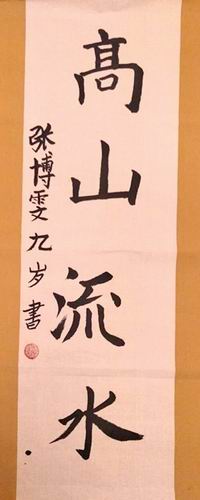 高山流水
张博雯九岁書